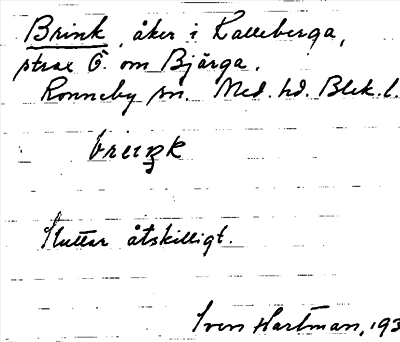 Brink, åker i Kalleberga,
strax Ö. om Bjärga.
Ronneby sn. Med. hd. Blek. l.
Sluttar åtskilligt.
Iven Hartman, 193